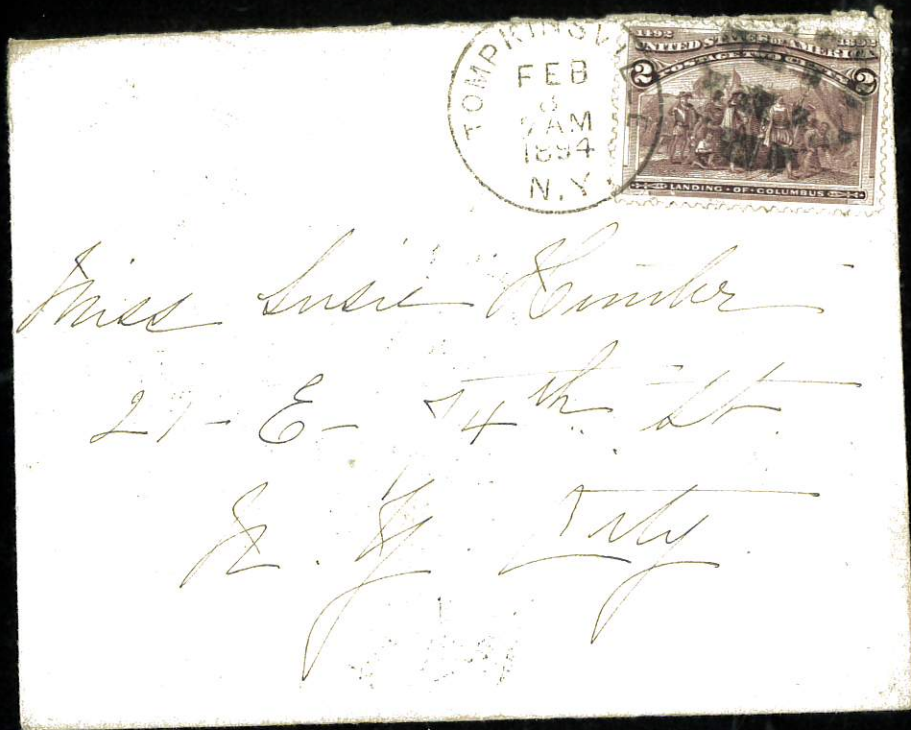 TOMPKINSVILLE
FEB
9AM
1894
N.Y.
1492 1892
UNITED STATES OF AMERICA
POSTAGE TWO CENTS
2 2
LANDING OF COLUMBUS
Miss Susie
E- 74th St.
N. Y. City.